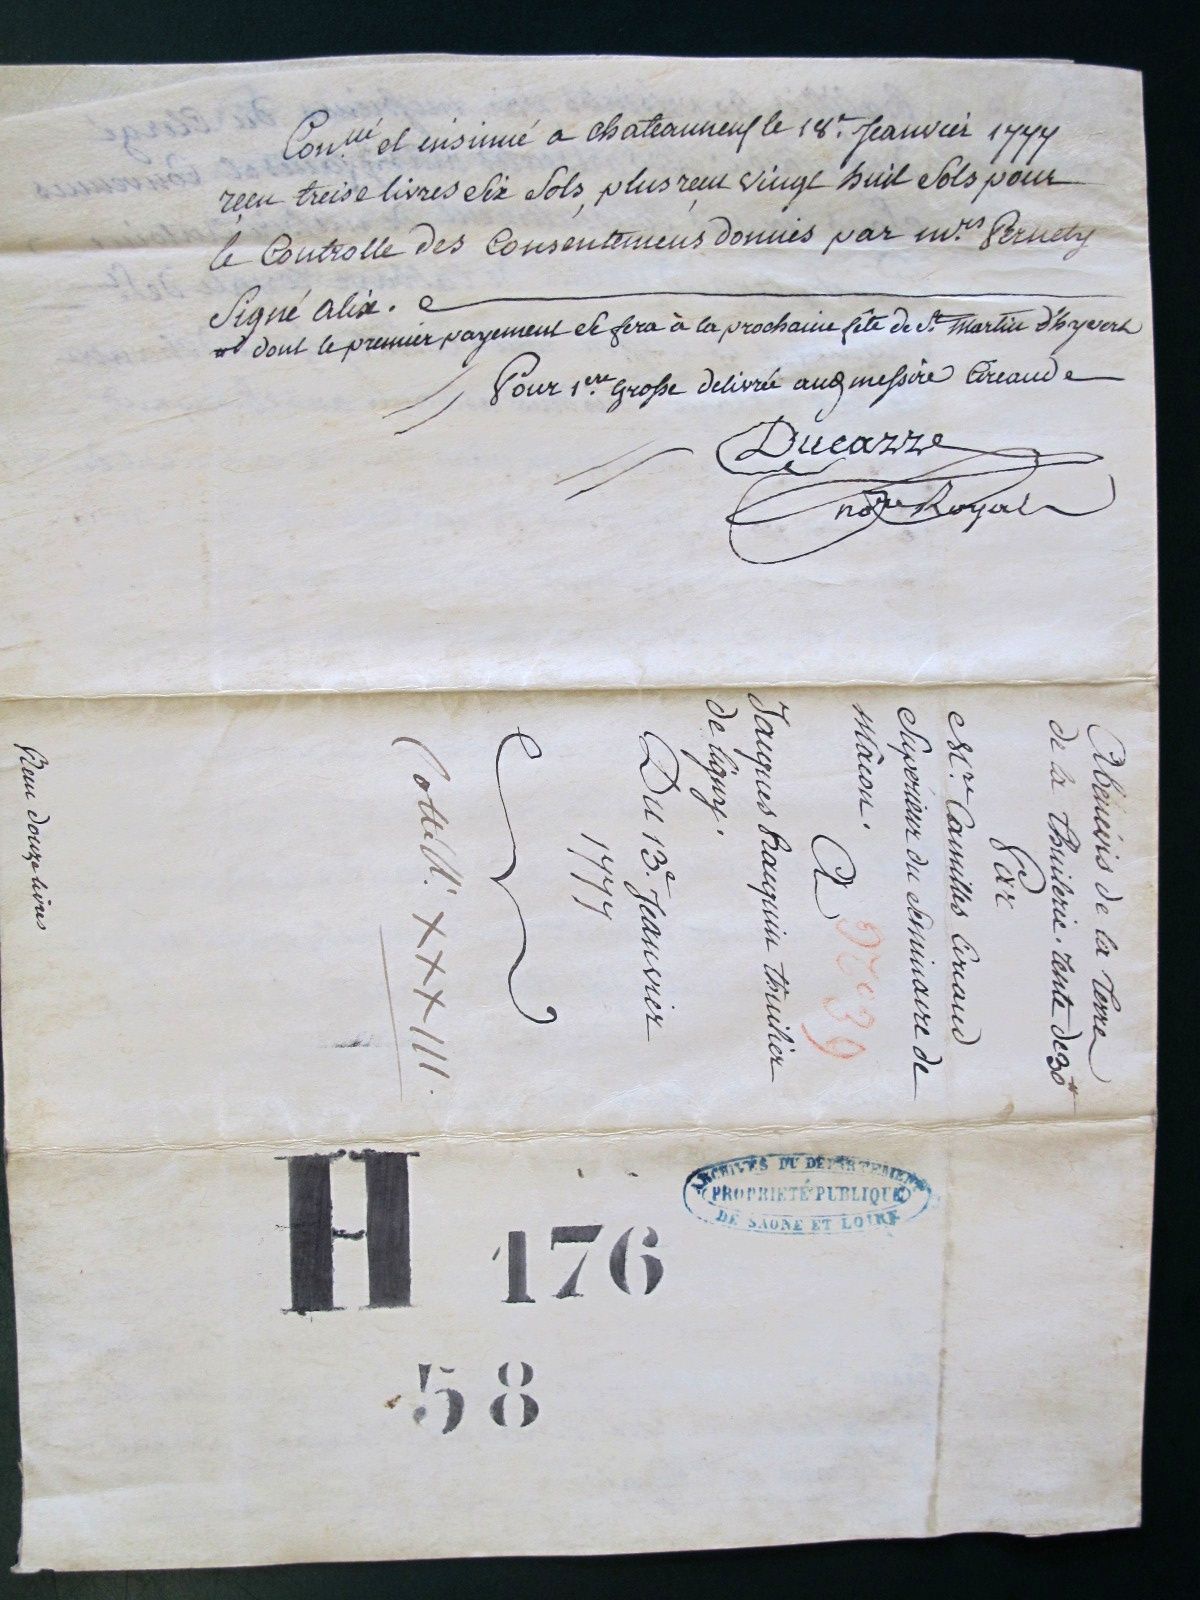 Con.llé et insinué a chateauneuf le 18e. Jeanvier 1777
reçu treise livres Six Sols, plus reçu vingt huit Sols pour
le Controlle des Consentemens donnés par mrs Pernety
Signé alix.
dont le premier payement Se fera à la prochaine fête de St. Martin d'hyvert
Pour 1ere. Grosse delivrée audmessire Circaud
Ducazze
nore Royal
Abénévis de la Terre
de la Thuilerie. rente de 30 ll
Par
Mre. Camilles Circaud
Supérieur du Séminaire de
Mâcon.
A
No 39
Jacques Prauquin thuilier
de ligny.
Du 13e. Jeanvier
1777
Cotte ll. XXXIII.
Reçu douze livres
ARCHIVES DU DÉPARTEMENT
PROPRIÉTÉ PUBLIQUE
DE SAONE ET LOIRE
H 176
58